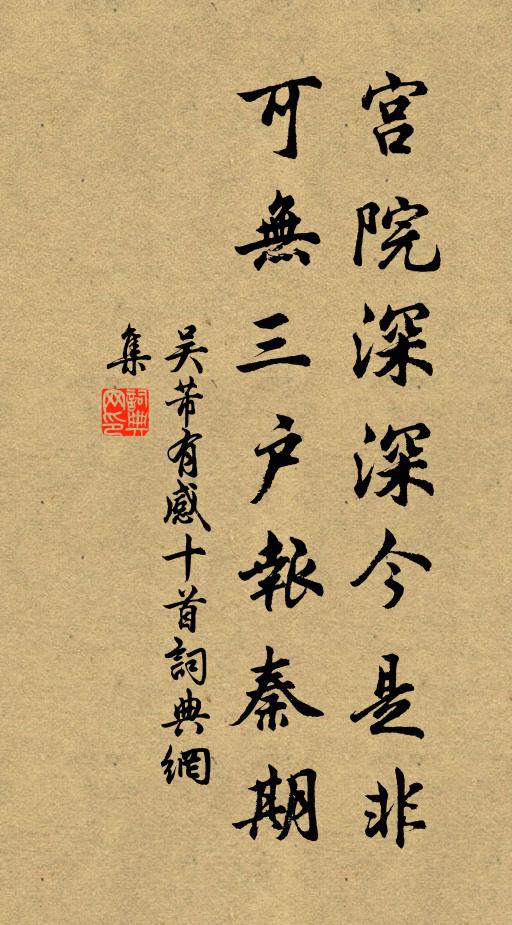 宫院深深今是非
可無三户報秦期
吴芾有感十首詞典網
集
詞典
网印